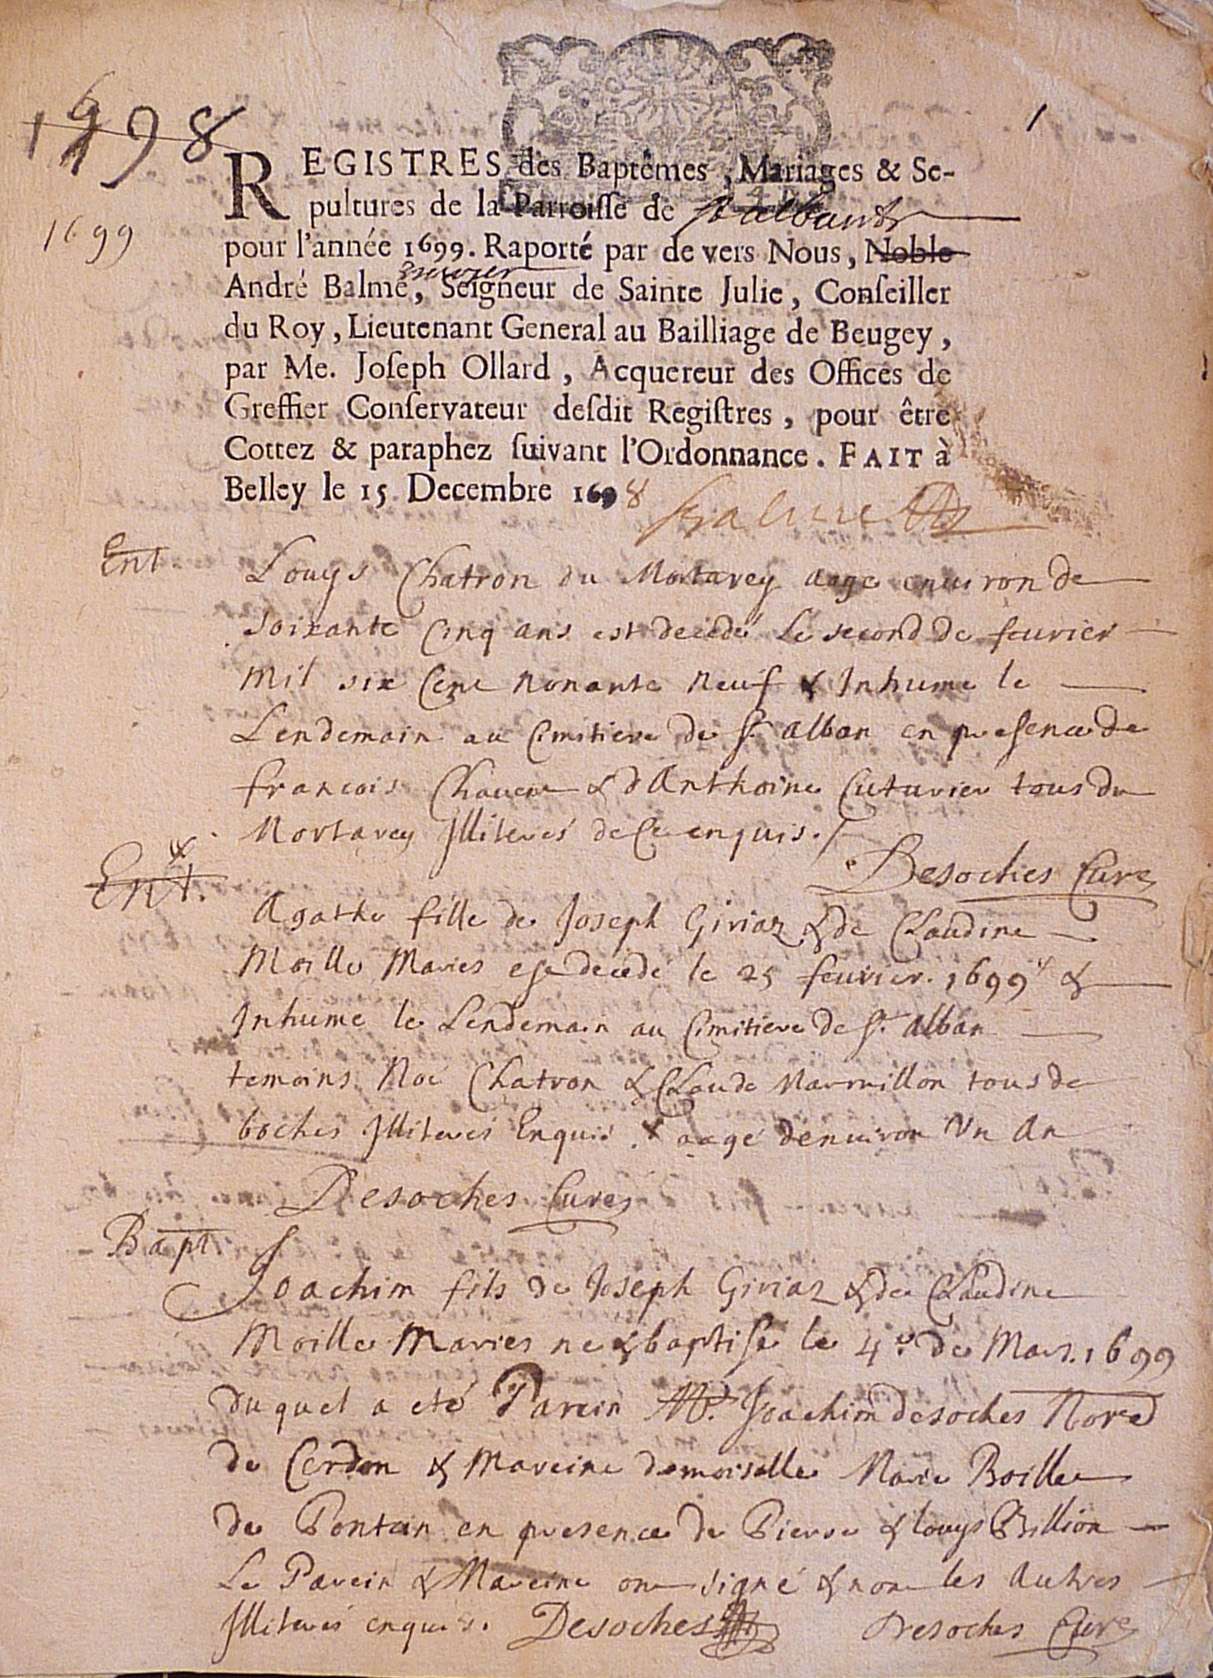 1698
1
1699
REGISTRES des Baptêmes, Mariages & Se-
pultures de la Parroisse de St alban
pour l'année 1699. Raporté par de vers Nous, Noble
escuyer
André Balme, Seigneur de Sainte Julie, Conseiller
du Roy, Lieutenant General au Bailliage de Beugey,
par Me. Joseph Ollard, Acquereur des Offices de
Greffier Conservateur desdit Registres, pour être
Cottez & paraphez suivant l'Ordonnance. FAIT à
Belley le 15 Decembre 1698
Balme
Ent
Louys Chatron du Mortarey aage enuiron de
soixante Cinq ans est decedé Le second de feurier
mil six Cent nonante neuf & Inhume le
Lendemain au Cimitiere de St alban en presence de
francois & d'Anthoine Cuturier tous du
Mortarey Illiterés de Ce enquis./
Desoches Curé
Ent.
Agathe fille de Joseph Giriaz & de Claudine
Moille Maries est decede le 25 feurier. 1699 x &
Inhume le Lendemain au Cimitiere de St. alban
temoins Noé Chatron & Claude Marmillon tous de
boches Illiterés Enquis. x aagé denuiron Un An
Desoches Curé
Bapt
Joachim fils de Joseph Giriaz & de Claudine
Moille Maries ne & baptise le 4e. de Mars. 1699
duquel a eté Parein Mr. Joachim desoches Nore
de Cerdon & Mareine demoiselle Marie Boille
de Pontin en presence de Pierre & louys Billion
Le Parein & Mareine ont signé & non les Autres
Illiterés enquis. Desoches Desoches Curé